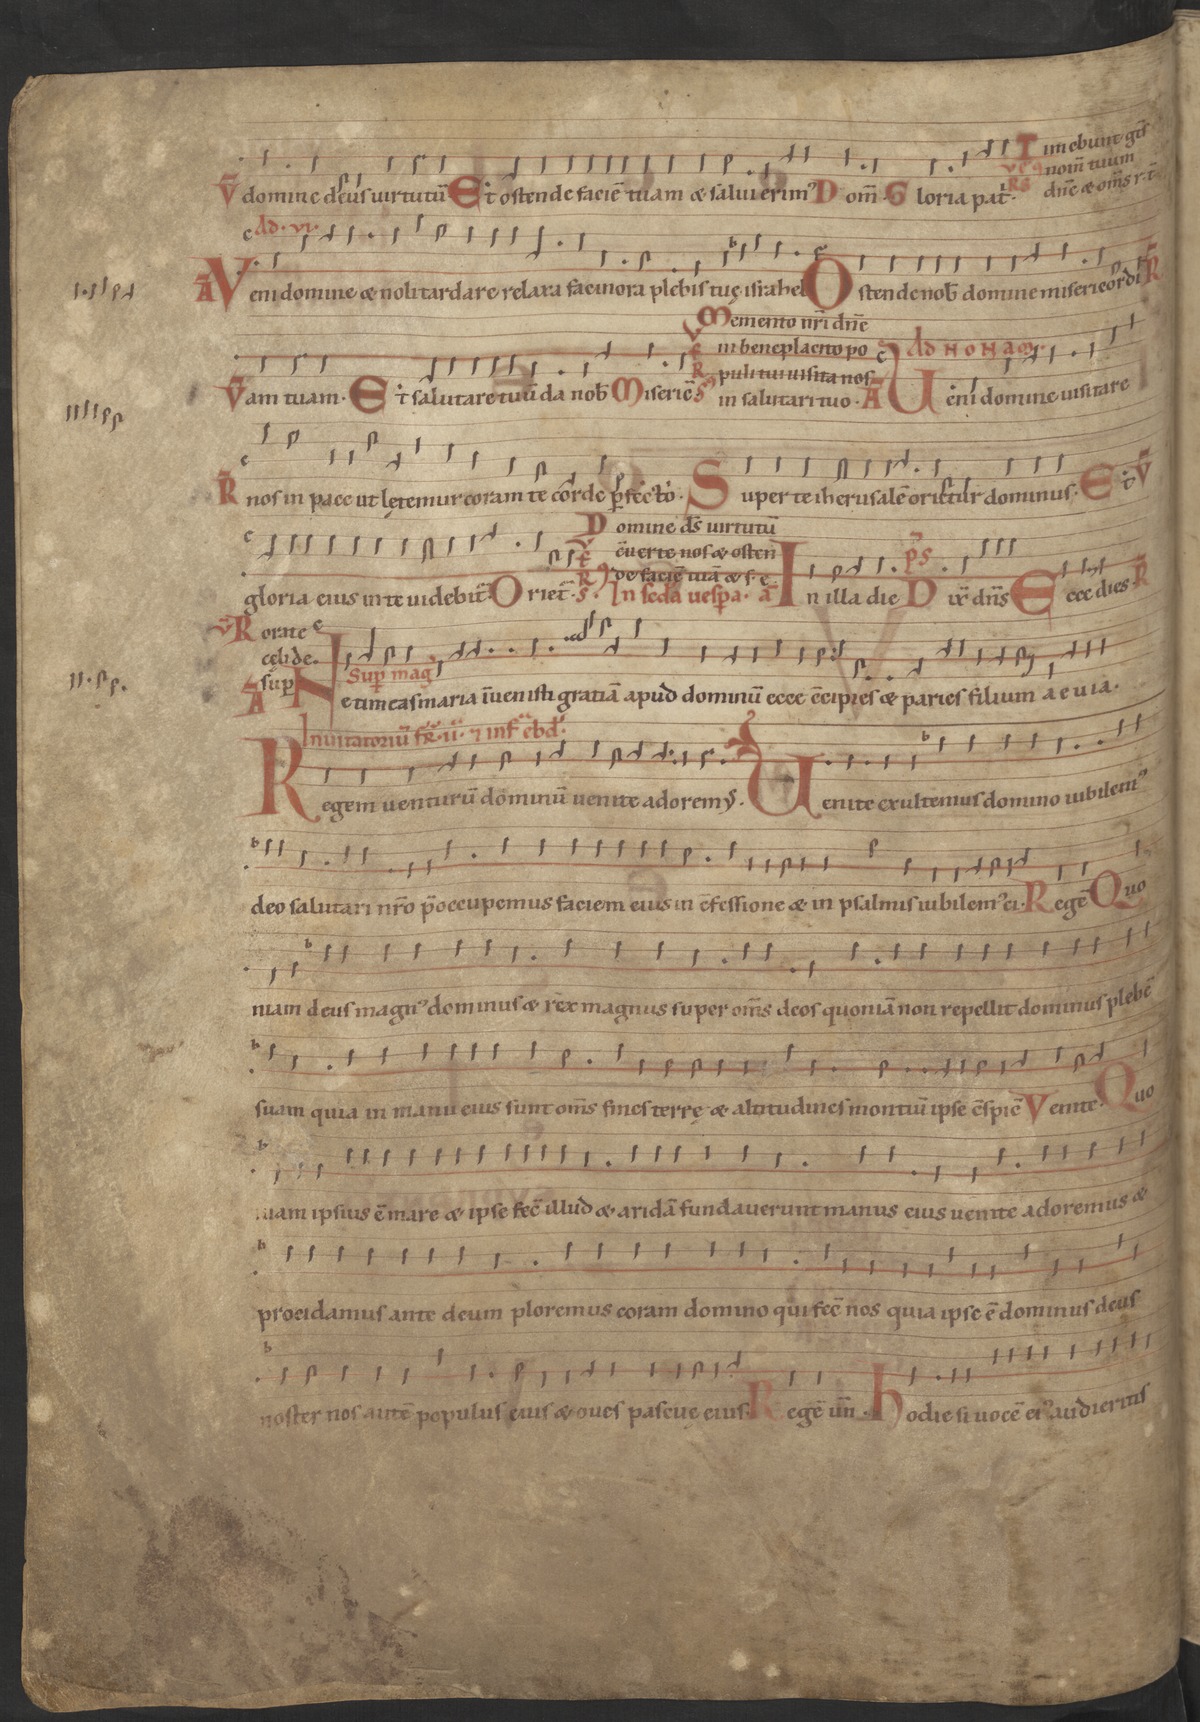 Timebunt gts
nom tuum
V domine deus uirtutū Et ostende faciē tuam & salui erimꝰ Dom̄ Gloria pat̄
dn̄e & om̄s r. t.
Ad . vi .
A Veni domine & noli tardare relaxa facinora plebis tuę israhel Ostende nob̄ domine misericordi R
Memento nr̄i dn̄e
in beneplacito po
Ad Nonam.
puli tui uisita nos
V am tuam. Et salutare tuū da nob̄ Miseric̄ in salutari tuo. A Ueni domine uisitare
R nos in pace ut lętemur coram te corde ꝑfecto. Super te iherusalē orietur dominus. Et V
Domine ds̄ uirtutū
c̄uerte nos & osten
de faciē tuā & s. e.
gloria eius in te uidebit̄ Oriet̄. In scd̄a uesꝑa. ā In illa die Dix̄ dn̄s Ecce dies R
V Rorate
cęli de
suꝑ
Suꝑ maḡ
A Ne timeas maria īuenisti gratiā apud dominū ecce c̄cipies & paries filium aeuia.
Inuitatoriū fr̄. ii. ⁊ inf̄ ebd̄.
Regem uenturū dominū uenite adoremꝰ. Uenite exultemus domino iubilemꝰ
deo salutari nr̄o p̄occupemus faciem eius in c̄fessione & in psalmis iubilemꝰ ei. Regē Quo
niam deus magnꝰ dominus & rex magnus super om̄s deos quoniā non repellit dominus plebē
suam quia in manu eius sunt om̄s fines terrę & altitudines montiū ipse c̄spic̄ Venite Quo
niam ipsius ē mare & ipse fec̄ illud & aridā fundauerunt manus eius uenite adoremus &
procidamus ante deum ploremus coram domino qui fec̄ nos quia ipse ē dominus deus
noster nos autē populus eius & oues pascuę eius. Regē un̄. Hodie si uocē eiꝰ audieritis